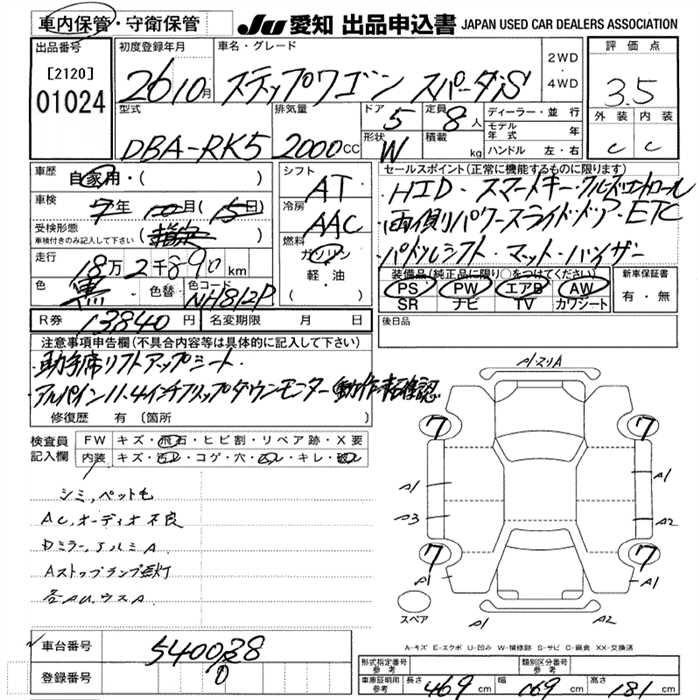 車内保管・守衛保管
JU 愛知 出品申込書 JAPAN USED CAR DEALERS ASSOCIATION
出品番号
[2120]
01024
初度登録年月
26年10月
車名・グレード
ステップワゴン スパーダS
2WD
・
4WD
評価点
3.5
外装 内装
C C
型式
DBA-RK5
排気量
2000cc
ドア
5
定員
8人
形状
W
積載
kg
ディーラー・並行
モデル年式 年
ハンドル 左・右
車歴
自家用・( )
車検
7年10月(15日)
受検形態
車検付きのみ記入して下さい
(指定)
走行
18万2千890km
色
黒
色替
色コード
NH812P
シフト
AT
冷房
AAC
燃料
ガソリン
軽・油
( )
セールスポイント(正常に機能するものに限ります)
・HID・スマートキー・クルーズコントロール
・両側パワースライドドア・ETC
・パドルシフト・マット・バイザー
装備品(純正品に限り○をつけてください)
PS PW エアB AW
SR ナビ TV カワシート
新車保証書
有・無
R券 13840円
名変期限 月 日
後日品
注意事項申告欄(不具合内容等は具体的に記入して下さい)
・助手席リフトアップシート
・アルパイン11.4インチフリップダウンモニター(動作未確認
修復歴 有(箇所 )
検査員
記入欄
FW キズ・飛石・ヒビ割・リペア跡・X要
内装 キズ・汚レ・コゲ・穴・ムレ・キレ・破レ
シミ,ペット毛
AC,オーディオ不良
Dミラー,アルミA
Aストップランプ点灯
各AU,ウスA
A・マリA
7 7
A1 A1
A3 A2
7 7
A1 A1
スペア
A1 A2
A-キズ E-エクボ U-凹み W-補修跡 S-サビ C-腐食 XX-交換済
車台番号
5400238
0
登録番号
形式指定番号
参考
類別区分番号
参考
車庫証明用
参考
長さ 469cm
幅 169cm
高さ 181cm